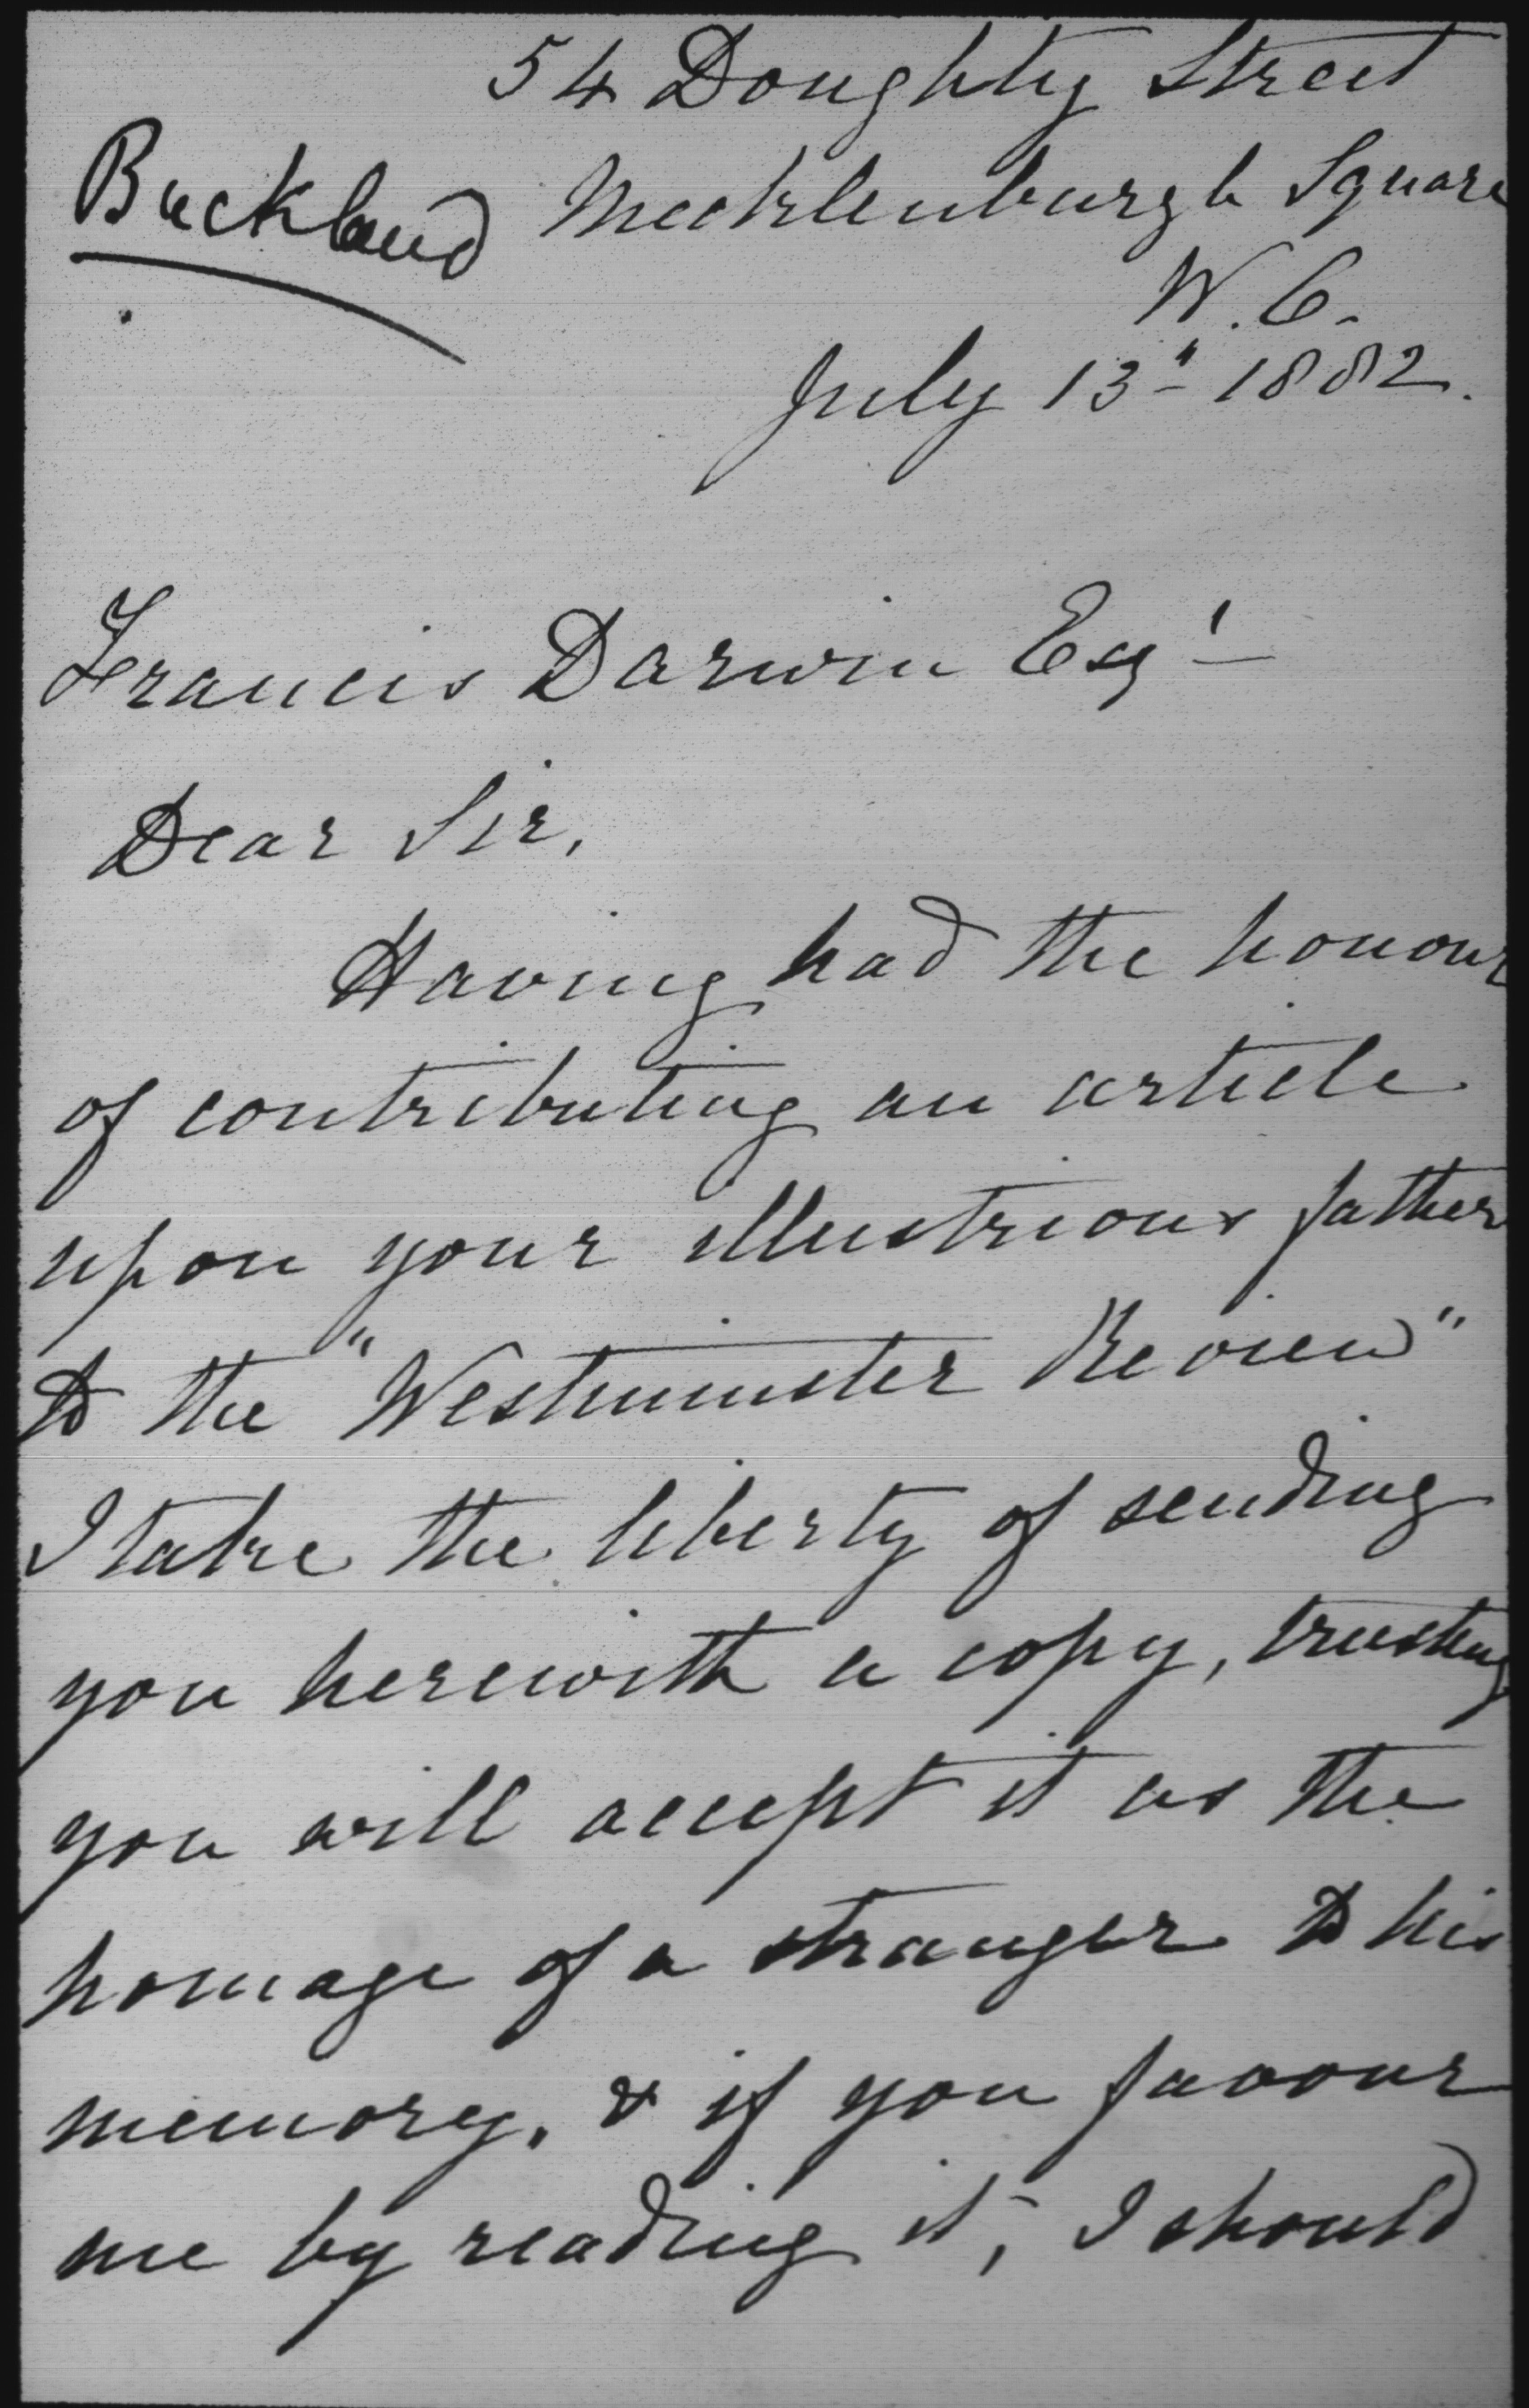 54 Doughty Street
Buckland
Mecklenburgh Square
W.C.
July 13th 1882.
Francis Darwin Esqr
Dear Sir,
Having had the honour
of contributing an article
upon your illustrious father
to the "Westminster Review"
I take the liberty of sending
you herewith a copy, trusting
you will accept it as the
homage of a stranger to his
memory, & if you favour
me by reading it, I should